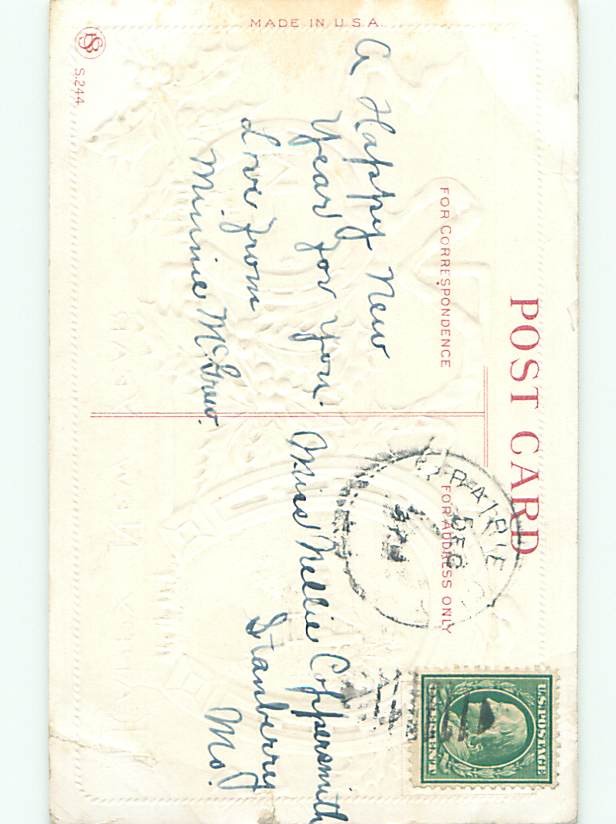 MADE IN U.S.A.
S.244.
POST CARD
FOR CORRESPONDENCE
FOR ADDRESS ONLY
A Happy New
Year for you.
Love from
Minnie McGrew.
PRAIRIE
DEC
Miss Nellie Coppersmith
Stanberry
Mo.
U.S. POSTAGE